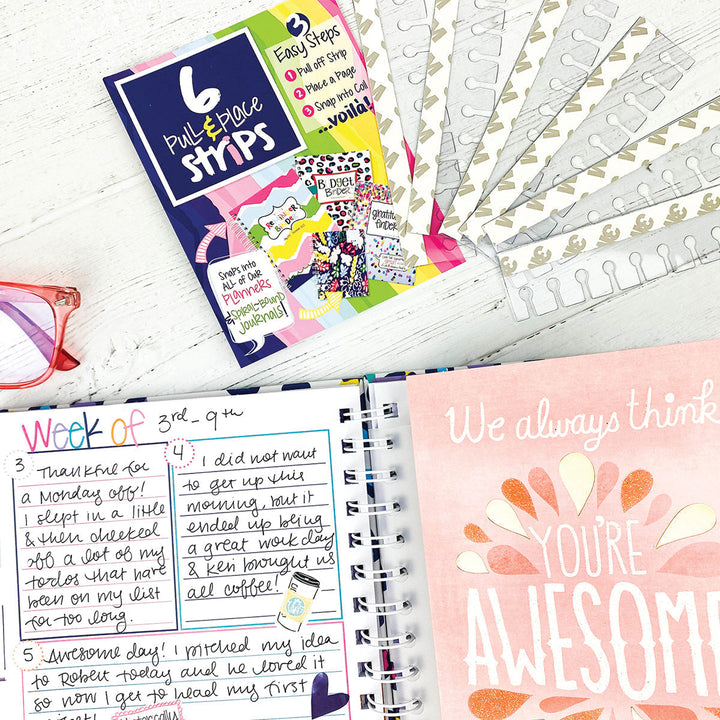 6
Pull & Place
Strips
3
Easy Steps
1 Pull off Strip
2 Place a Page
3 Snap into Coil
...voilà!
Budget
Binder
gratitude
finder
Snaps into
ALL of our
Planners
& Spiral-Bound
Journals!
Week of 3rd - 9th
3 Thankful for
a Monday off!
I slept in a little
& then checked
off a lot of my
todos that have
been on my list
for too long.
4 I did not want
to get up this
morning, but it
ended up being
a great work day
& Keri brought us
all coffee!
5 Awesome day! I pitched my idea
to Robert today and he loved it
so now I get to head my first
We always think
YOU'RE
AWESOME